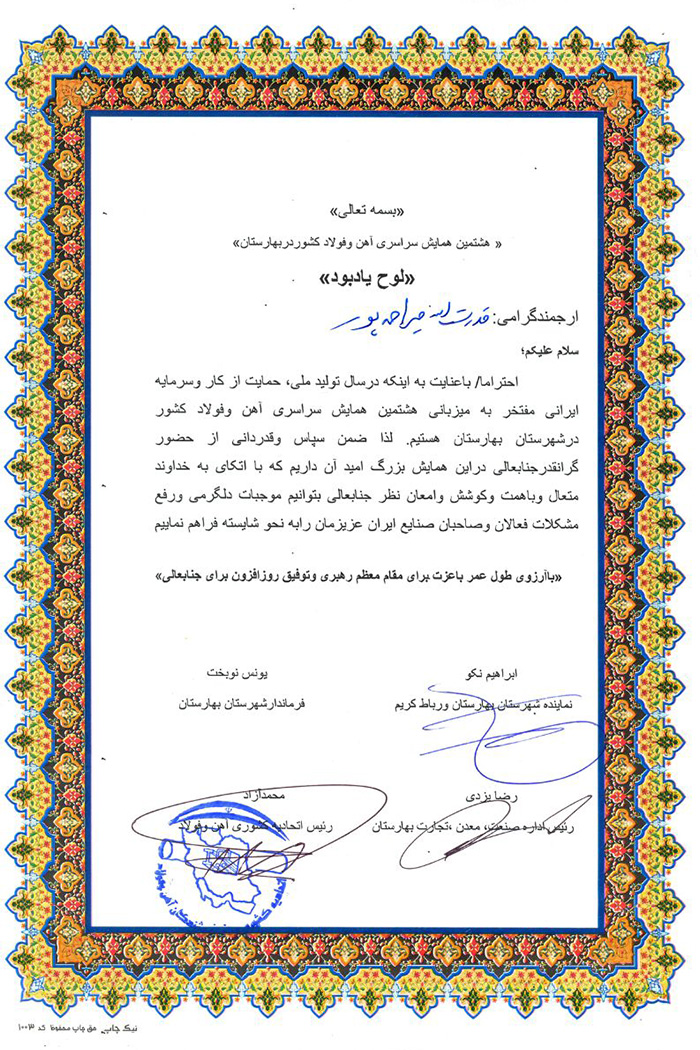 «بسمه تعالی»
« هشتمین همایش سراسری آهن وفولاد کشوردربهارستان»
«لوح یادبود»
ارجمندگرامی: قدرت اله میراحمدپور
سلام علیکم؛
احتراما/ باعنایت به اینکه درسال تولید ملی، حمایت از کار وسرمایه
ایرانی مفتخر به میزبانی هشتمین همایش سراسری آهن وفولاد کشور
درشهرستان بهارستان هستیم. لذا ضمن سپاس وقدردانی از حضور
گرانقدرجنابعالی دراین همایش بزرگ امید آن داریم که با اتکای به خداوند
متعال وباهمت وکوشش وامعان نظر جنابعالی بتوانیم موجبات دلگرمی ورفع
مشکلات فعالان وصاحبان صنایع ایران عزیزمان رابه نحو شایسته فراهم نماییم
«باآرزوی طول عمر باعزت برای مقام معظم رهبری وتوفیق روزافزون برای جنابعالی»
ابراهیم نکو
نماینده شهرستان بهارستان ورباط کریم
یونس نوبخت
فرماندارشهرستان بهارستان
رضا یزدی
رئیس اداره صنعت، معدن ،تجارت بهارستان
محمدآزاد
رئیس اتحادیه کشوری آهن وفولاد
نیک چاپ حق چاپ محفوظ کد ۱۰۰۳